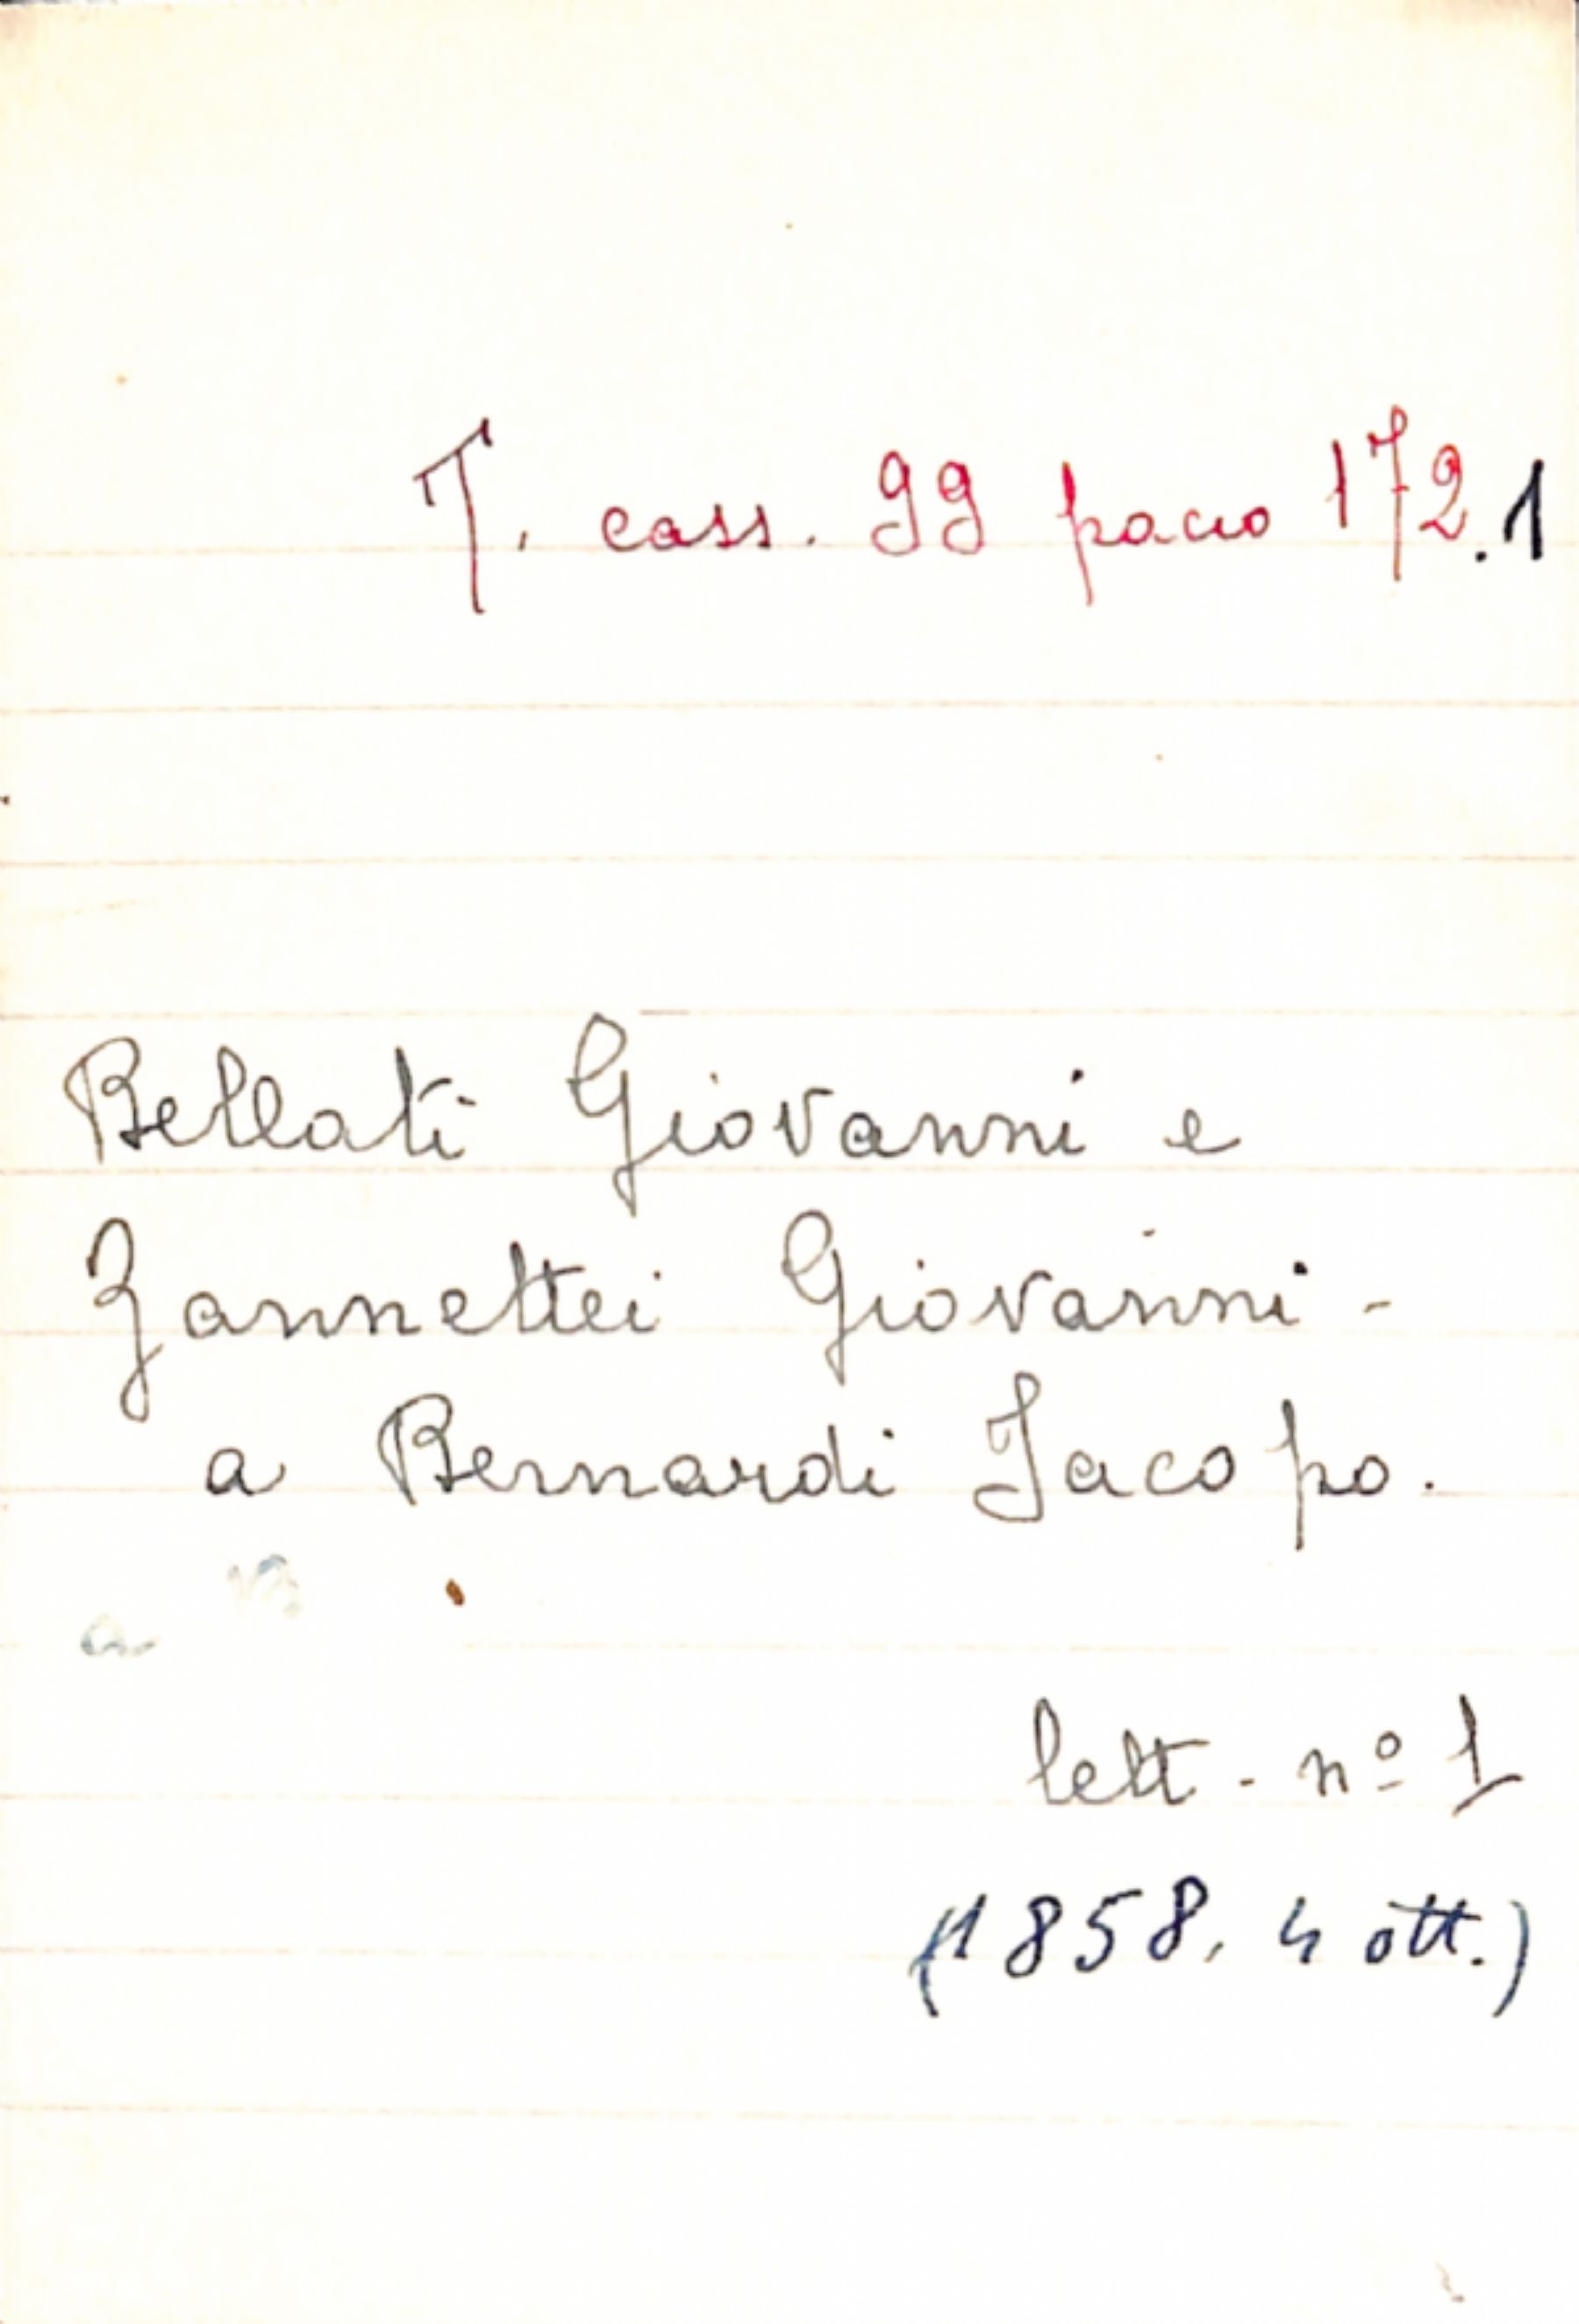 T. cass. 99 pacco 172.1
Bellati Giovanni e
Zannettei Giovanni -
a Bernardi Jacopo.
a
lett. nº 1
(1858, 4 ott.)